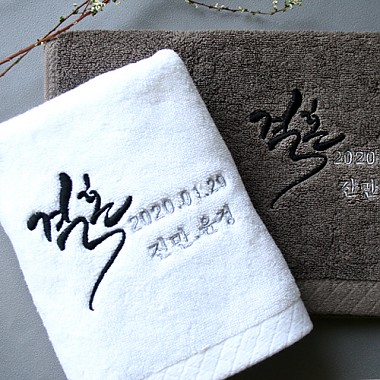 결혼
2020.01.20
진민.유경
결혼
2020
진민